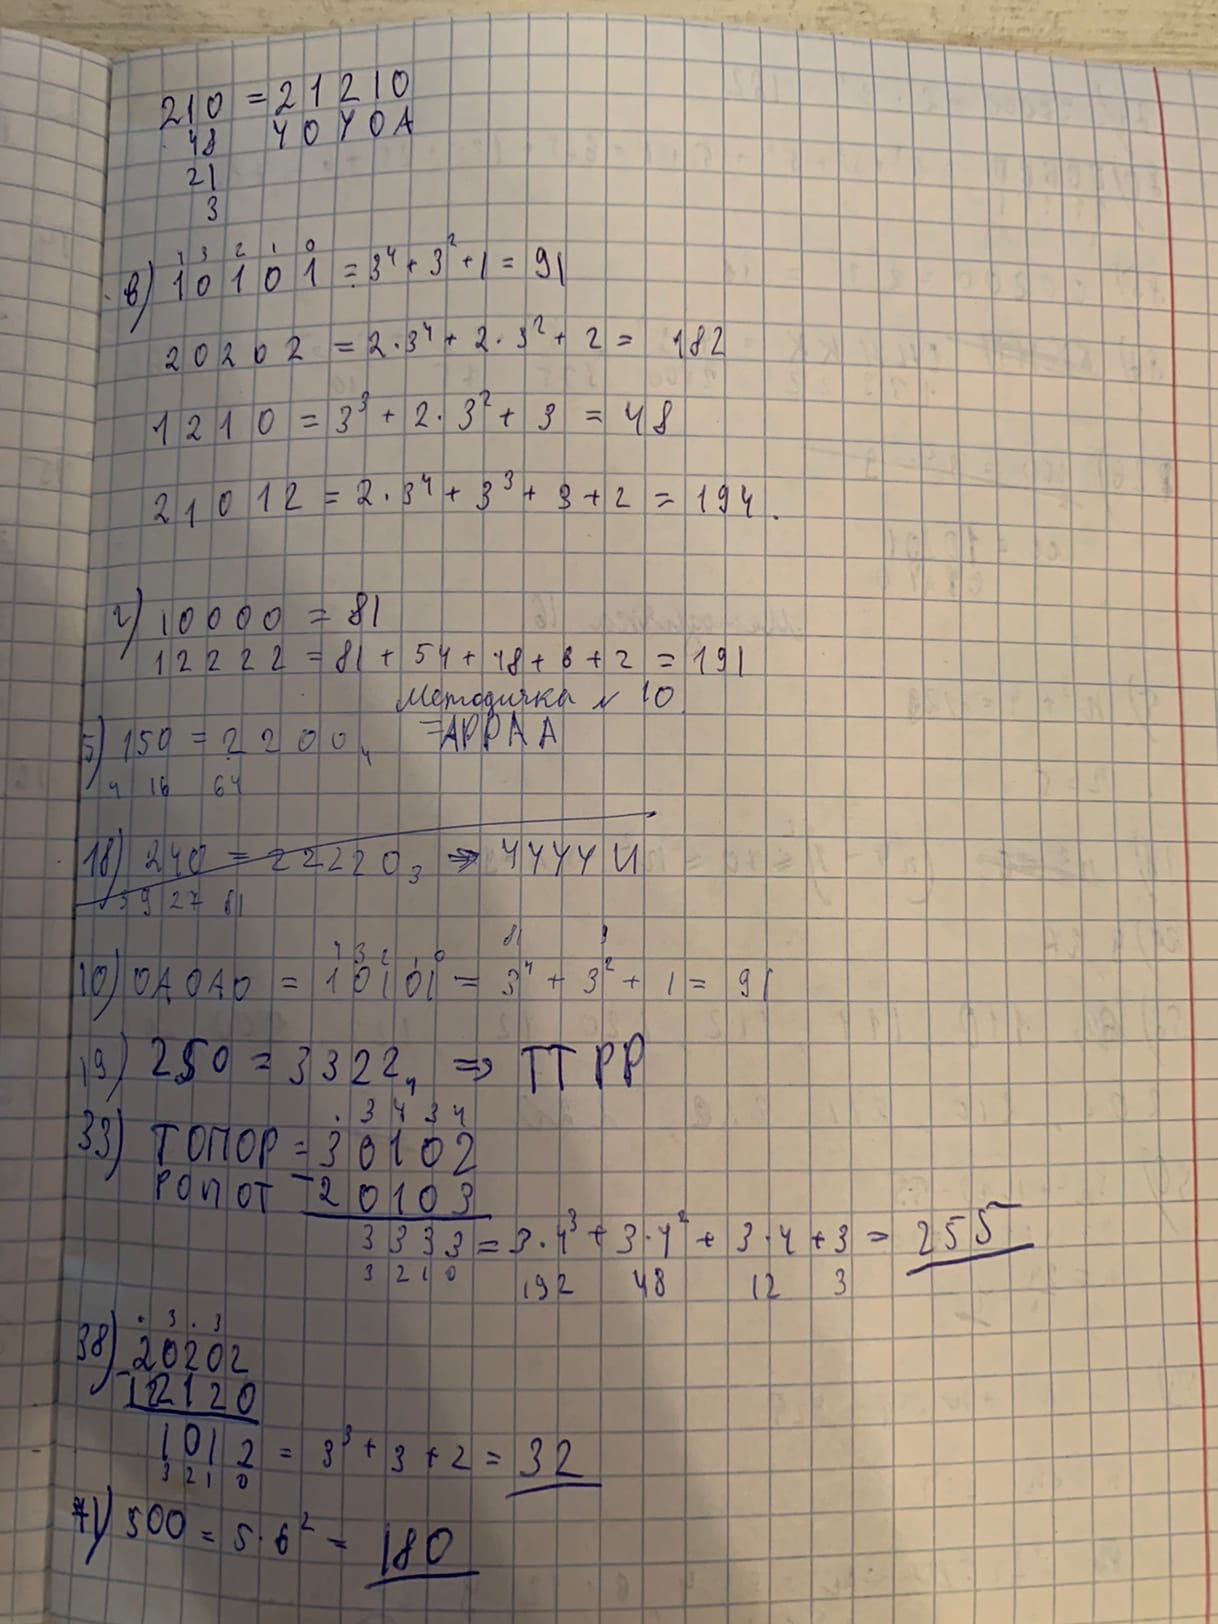 210 = 21210
48 ЧОЧОА
21
3
4 3 2 1 0
в) 10101 = 3⁴ + 3² + 1 = 91
20202 = 2·3⁴ + 2·3² + 2 = 182
1210 = 3³ + 2·3² + 3 = 48
21012 = 2·3⁴ + 3³ + 3 + 2 = 194.
г) 10000 = 81
12222 = 81 + 54 + 18 + 6 + 2 = 191
Методичка № 10
5) 150 = 2200₄
4 16 64
18) 240 = 22220₃ => ЧЧЧЧИ
3 9 27 81
4 3 2 1 0 81 9
10) ОАОАО = 10101 = 3⁴ + 3² + 1 = 91
19) 250 = 3322₄ => ТТРР
. 3 4 3 4
33) ТОПОР = 30102
РОПОТ - 20103
3333 = 3·4³ + 3·4² + 3·4 + 3 = 255
3 2 1 0 192 48 12 3
. 3 . 3
38) 20202
- 12120
1012 = 3³ + 3 + 2 = 32
3 2 1 0
71) 500 = 5·6² = 180